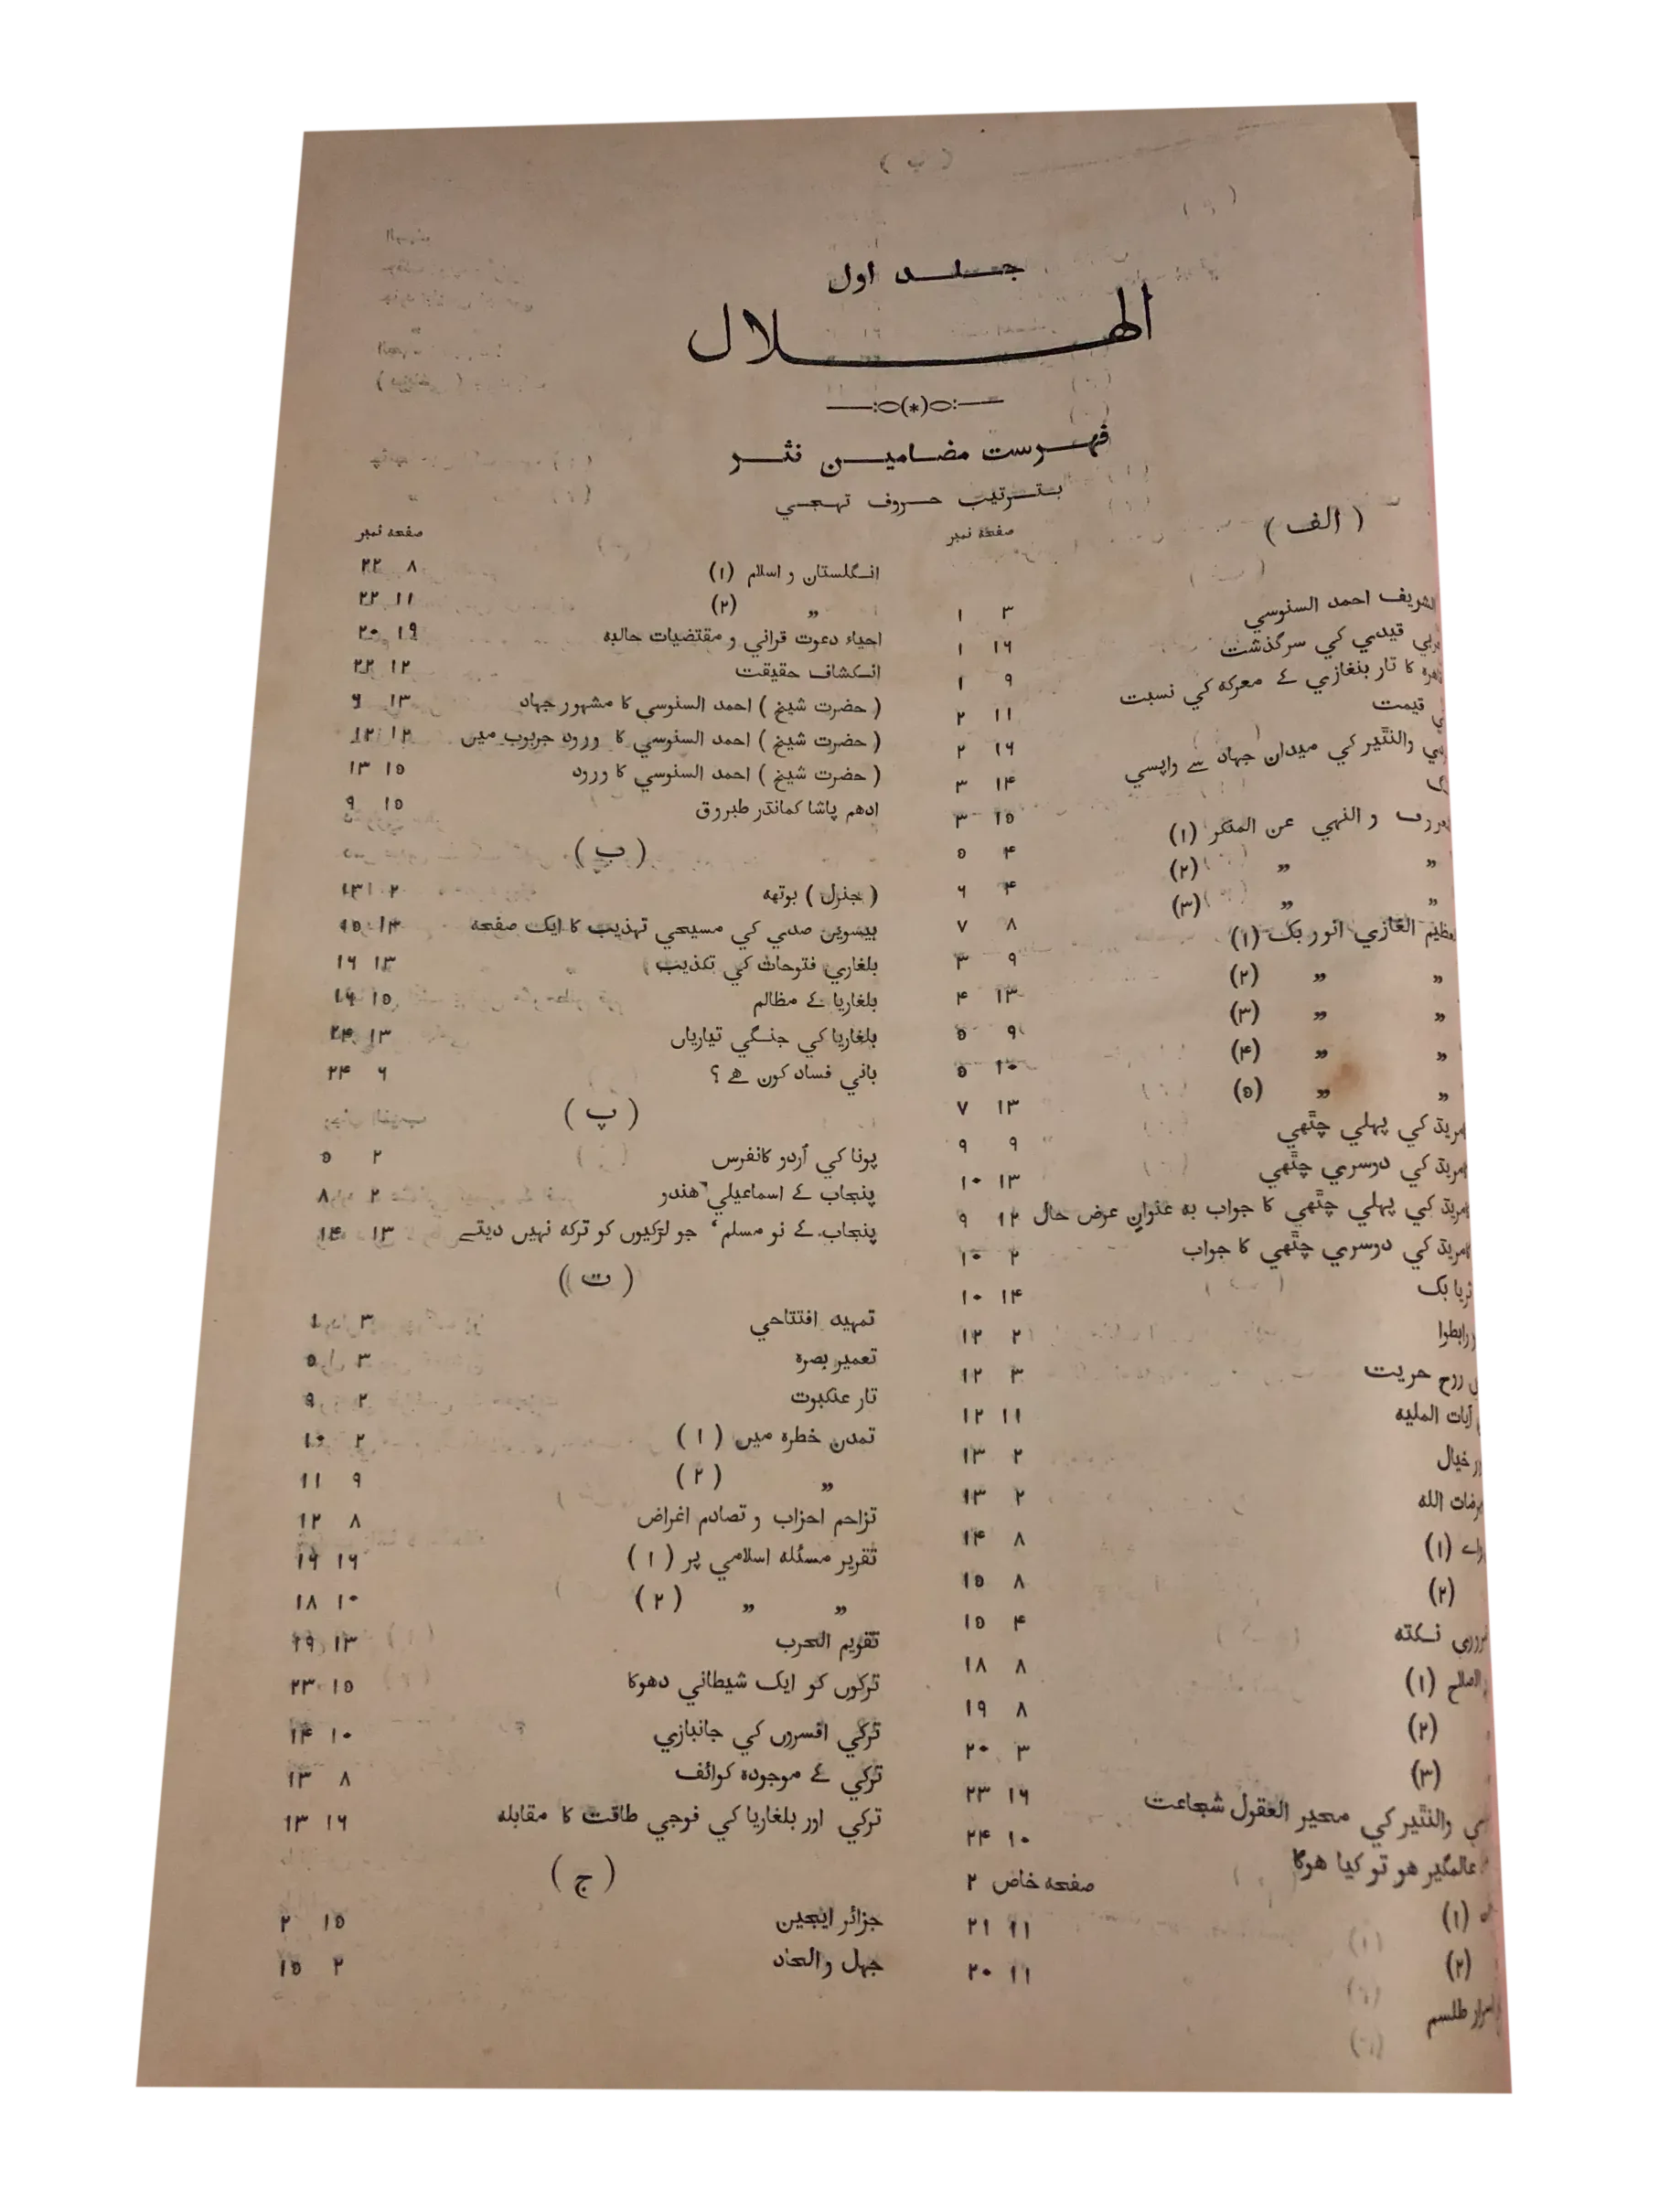 جلد اول
الہلال
فہرست مضامین نثر
بترتیب حروف تہجي
( الف )
صفحہ نمبر
الشریف احمد السنوسي ۳ ۱
قیدي کي سرگذشت ۱۶ ۱
کا تار بنغازي کے معرکہ کي نسبت ۹ ۱
قیمت ۱۱ ۲
والنٹیر کي میدان جہاد سے واپسي ۱۶ ۲
۱۴ ۳
و النہي عن المنکر (۱) ۱۵ ۳
” ” (۲) ۴ ۵
” ” (۳) ۴ ۶
الغازي انور بک (۱) ۸ ۷
” ” (۲) ۹ ۳
” ” (۳) ۱۳ ۴
” ” (۴) ۹ ۵
” ” (۵) ۱۰ ۵
کي پہلي چٹھي ۱۳ ۷
کي دوسري چٹھي ۹ ۹
کي پہلي چٹھي کا جواب بہ عنوان عرض حال ۱۳ ۱۰
کي دوسري چٹھي کا جواب ۱۲ ۹
ثریا بک ۲ ۱۰
رابطوا ۱۴ ۱۰
روح حریت ۲ ۱۲
آیات الملیہ ۳ ۱۲
خیال ۱۱ ۱۲
مرضات اللہ ۲ ۱۳
(۱) ۲ ۱۳
(۲) ۸ ۱۴
نکتہ ۸ ۱۵
(۱) ۴ ۱۵
(۲) ۸ ۱۸
(۳) ۸ ۱۹
والنٹیر کي محیر العقول شجاعت ۳ ۲۰
عالمگیر ہو تو کیا ہوگا ۱۶ ۲۳
(۱) ۱۰ ۲۴
(۲) صفحہ خاص ۲
اسرار طلسم ۱۱ ۲۱
۱۱ ۲۰
صفحہ نمبر
انگلستان و اسلام (۱) ۸ ۲۲
” (۲) ۱۱ ۲۲
احیاء دعوت قراني و مقتضیات حالیہ ۱۹ ۲۰
انکشاف حقیقت ۱۲ ۲۲
( حضرت شیخ ) احمد السنوسي کا مشہور جہاد ۱۳ ۶
( حضرت شیخ ) احمد السنوسي کا ورود جربوب میں ۱۲ ۱۲
( حضرت شیخ ) احمد السنوسي کا ورود ۱۵ ۱۳
ادھم پاشا کمانڈر طبروق ۱۵ ۹
( ب )
( جنرل ) بوتھہ ۲ ۱۳
بیسویں صدي کي مسیحي تہذیب کا ایک صفحہ ۱۴ ۱۵
بلغاري فتوحات کي تکذیب ۱۳ ۱۶
بلغاریا کے مظالم ۱۵ ۱۶
بلغاریا کي جنگي تیاریاں ۱۳ ۲۴
باني فساد کون ہے ؟ ۶ ۲۴
( پ )
پونا کي اُردو کانفرس ۲ ۵
پنجاب کے اسماعیلي ہندو ۲ ۸
پنجاب کے نو مسلم ٬ جو لڑکیوں کو ترکہ نہیں دیتے ۱۳ ۱۴
( ت )
تمہید افتتاحي ۳ ۱
تعمیر بصرہ ۳ ۵
تار عنکبوت ۲ ۹
تمدن خطرہ میں ( ۱ ) ۲ ۱۰
” ( ۲ ) ۹ ۱۱
تزاحم احزاب و تصادم اغراض ۸ ۱۲
تقریر مسئلہ اسلامي پر ( ۱ ) ۱۶ ۱۶
” ” ( ۲ ) ۱۰ ۱۸
تقویم الحرب ۱۳ ۱۹
ترکوں کو ایک شیطاني دھوکا ۱۵ ۲۳
ترکي افسروں کي جانبازي ۱۰ ۱۴
ترکي کے موجودہ کوائف ۸ ۱۳
ترکي اور بلغاریا کي فوجي طاقت کا مقابلہ ۱۶ ۱۳
( ج )
جزائر ایجین ۱۵ ۲
جہل و الحاد ۲ ۱۵